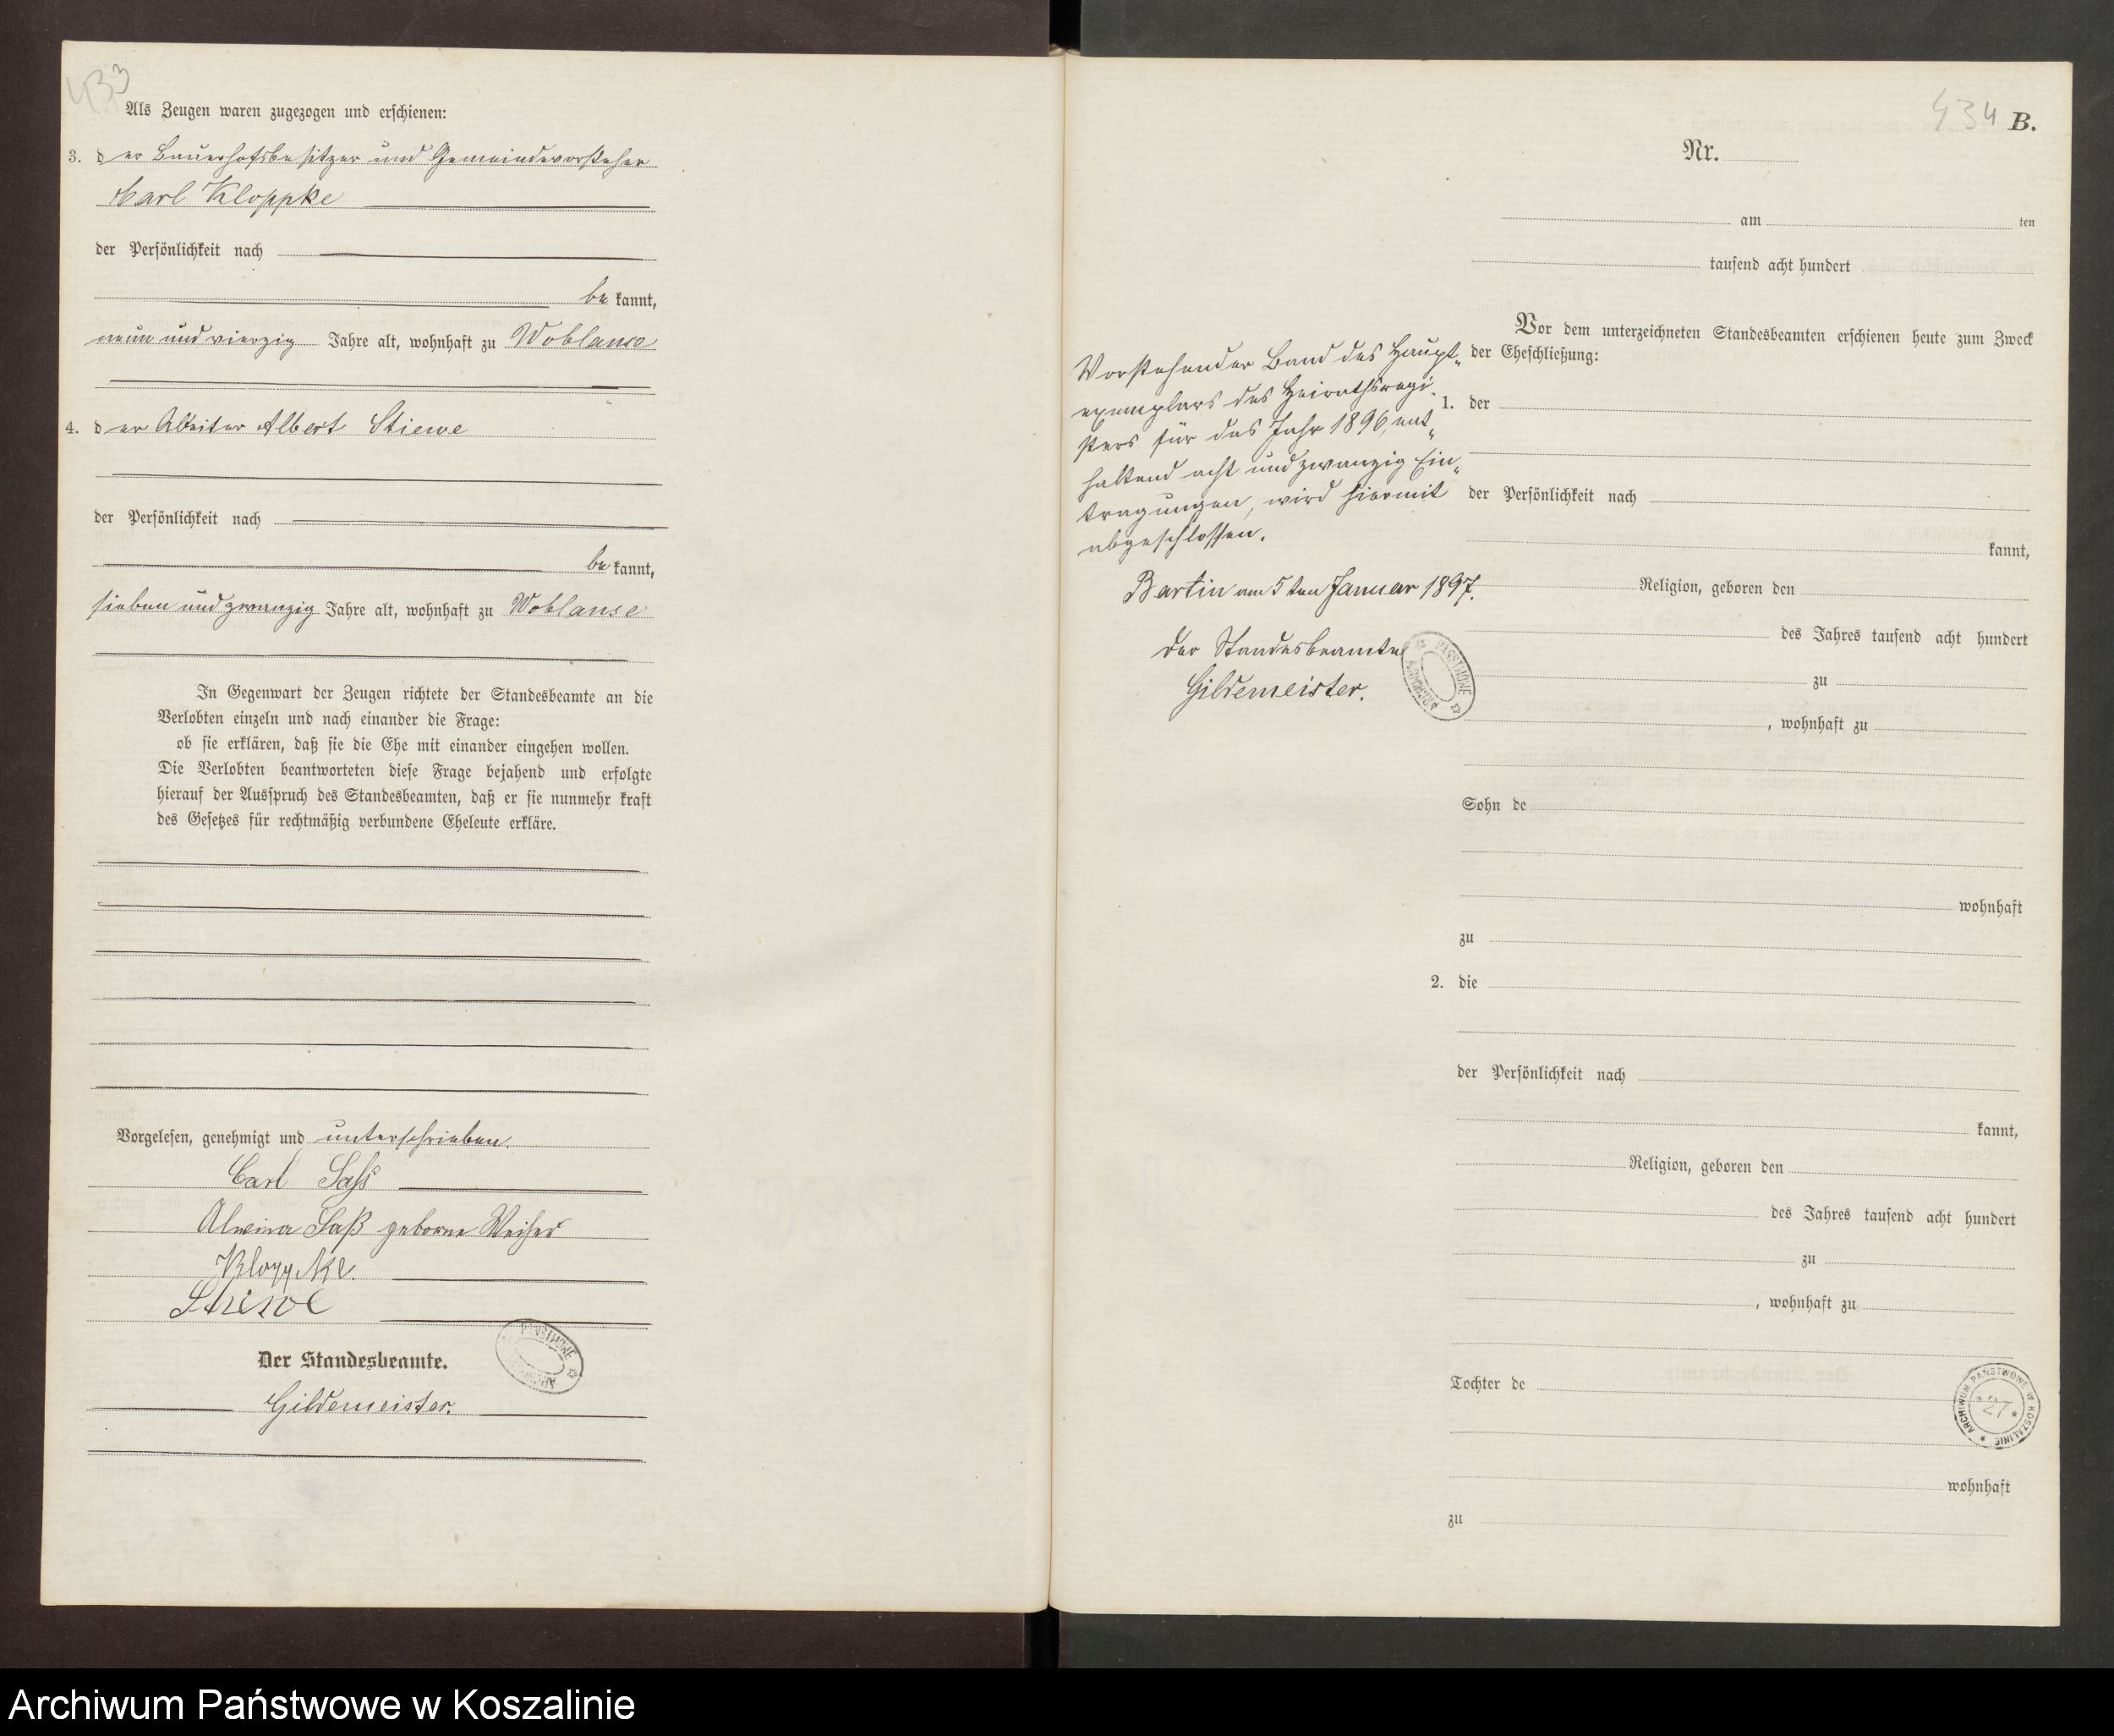 433
Als Zeugen waren zugezogen und erschienen:
3. der Bauerhofsbesitzer und Gemeindevorsteher
Carl Kloppke
der Persönlichkeit nach
be kannt,
neun und vierzig Jahre alt, wohnhaft zu Woblanse
4. der Abeiter Albert Stiewe
der Persönlichkeit nach
be kannt,
sieben und zwanzig Jahre alt, wohnhaft zu Woblanse
In Gegenwart der Zeugen richtete der Standesbeamte an die
Verlobten einzeln und nach einander die Frage:
ob sie erklären, daß sie die Ehe mit einander eingehen wollen.
Die Verlobten beantworteten diese Frage bejahend und erfolgte
hierauf der Ausspruch des Standesbeamten, daß er sie nunmehr kraft
des Gesetzes für rechtmäßig verbundene Eheleute erkläre.
Vorgelesen, genehmigt und unterschrieben.
Carl Saß
Alwina Saß geborne
Kloppke.
Stiewe
Der Standesbeamte.
Gildemeister.
434 B.
Nr.
am ten
tausend acht hundert
Vor dem unterzeichneten Standesbeamten erschienen heute zum Zweck
der Eheschließung:
1. der
der Persönlichkeit nach
kannt,
Religion, geboren den
des Jahres tausend acht hundert
zu
, wohnhaft zu
Sohn de
wohnhaft
zu
2. die
der Persönlichkeit nach
kannt,
Religion, geboren den
des Jahres tausend acht hundert
zu
, wohnhaft zu
Tochter de
wohnhaft
zu
Vorstehender Band des Haupt-
exemplars des Heirathsregi-
sters für das Jahr 1896, ent-
haltend acht und zwanzig Ein-
tragungen, wird hiermit
abgeschlossen.
Bartin am 5ten Januar 1897.
Der Standesbeamte
Gildemeister.
ARCHIWUM PAŃSTWOWE W KOSZALINIE
27
Archiwum Państwowe w Koszalinie